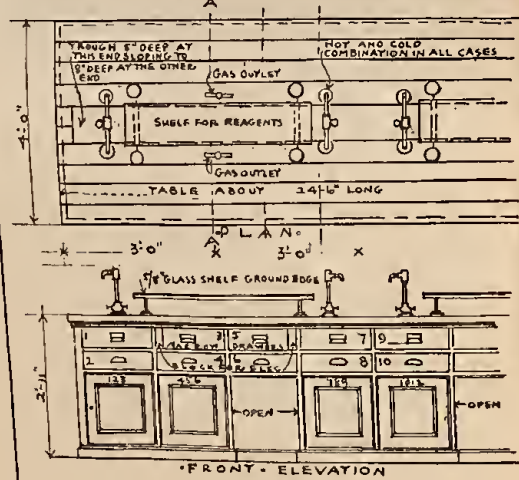 A
TROUGH 5" DEEP AT
THIS END SLOPING TO
8" DEEP AT THE OTHER
END
HOT AND COLD
COMBINATION IN ALL CASES
GAS OUTLET
4'-0"
SHELF FOR REAGENTS
GAS OUTLET
TABLE ABOUT 24'-6" LONG
A
PLAN
3'-0" x 3'-0" x
5/8" GLASS SHELF GROUND EDGE
1 3 5 7 9
NARROW DRAWERS
2 4 6 8 10
BLOCK FOR ELEC.
123 456 789 1012
2'-11"
OPEN
OPEN
FRONT · ELEVATION